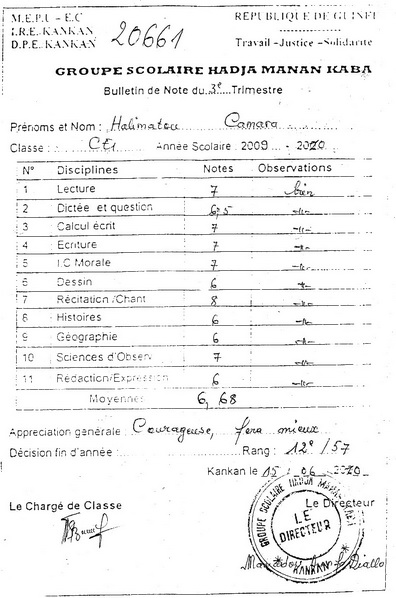 M.E.P.U - E.C
I.R.E. KANKAN
D.P.E. KANKAN
20661
RÉPUBLIQUE DE GUINEE
Travail -Justice -Solidarité
GROUPE SCOLAIRE HADJA MANAN KABA
Bulletin de Note du 3e Trimestre
Prénoms et Nom : Halimatou Camara
Classe : CE1 Année Scolaire 2009 - 2010
N° Disciplines Notes Observations
1 Lecture 7 bien
2 Dictée et question 6,5 -"-
3 Calcul écrit 7 -"-
4 Ecriture 7 -"-
5 I.C Morale 7 -"-
6 Dessin 6 -"-
7 Récitation /Chant 8 -"-
8 Histoires 6 -"-
9 Géographie 6 -"-
10 Sciences d'Observ 7 -"-
11 Rédaction/Expression 6 -"-
Moyennes 6,68
Appréciation générale : Courageuse, fera mieux
Décision fin d'année : Rang : 12e /57
Kankan le 15 06 2010
Le Chargé de Classe Le Directeur
GROUPE SCOLAIRE HADJA MANAN KABA
LE
DIRECTEUR
* KANKAN *
Diallo